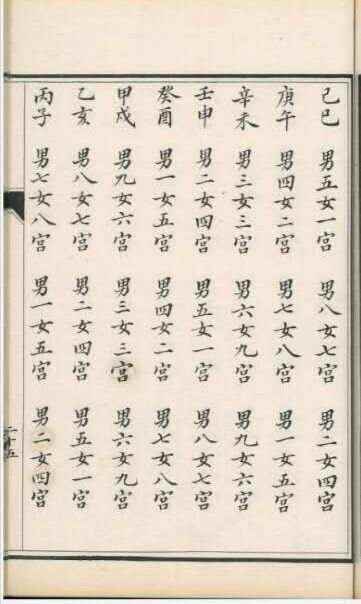 己巳 男五女一宮 男八女七宮 男二女四宮
庚午 男四女二宮 男七女八宮 男一女五宮
辛未 男三女三宮 男六女九宮 男九女六宮
壬申 男二女四宮 男五女一宮 男八女七宮
癸酉 男一女五宮 男四女二宮 男七女八宮
甲戌 男九女六宮 男三女三宮 男六女九宮
乙亥 男八女七宮 男二女四宮 男五女一宮
丙子 男七女八宮 男一女五宮 男二女四宮
二十五